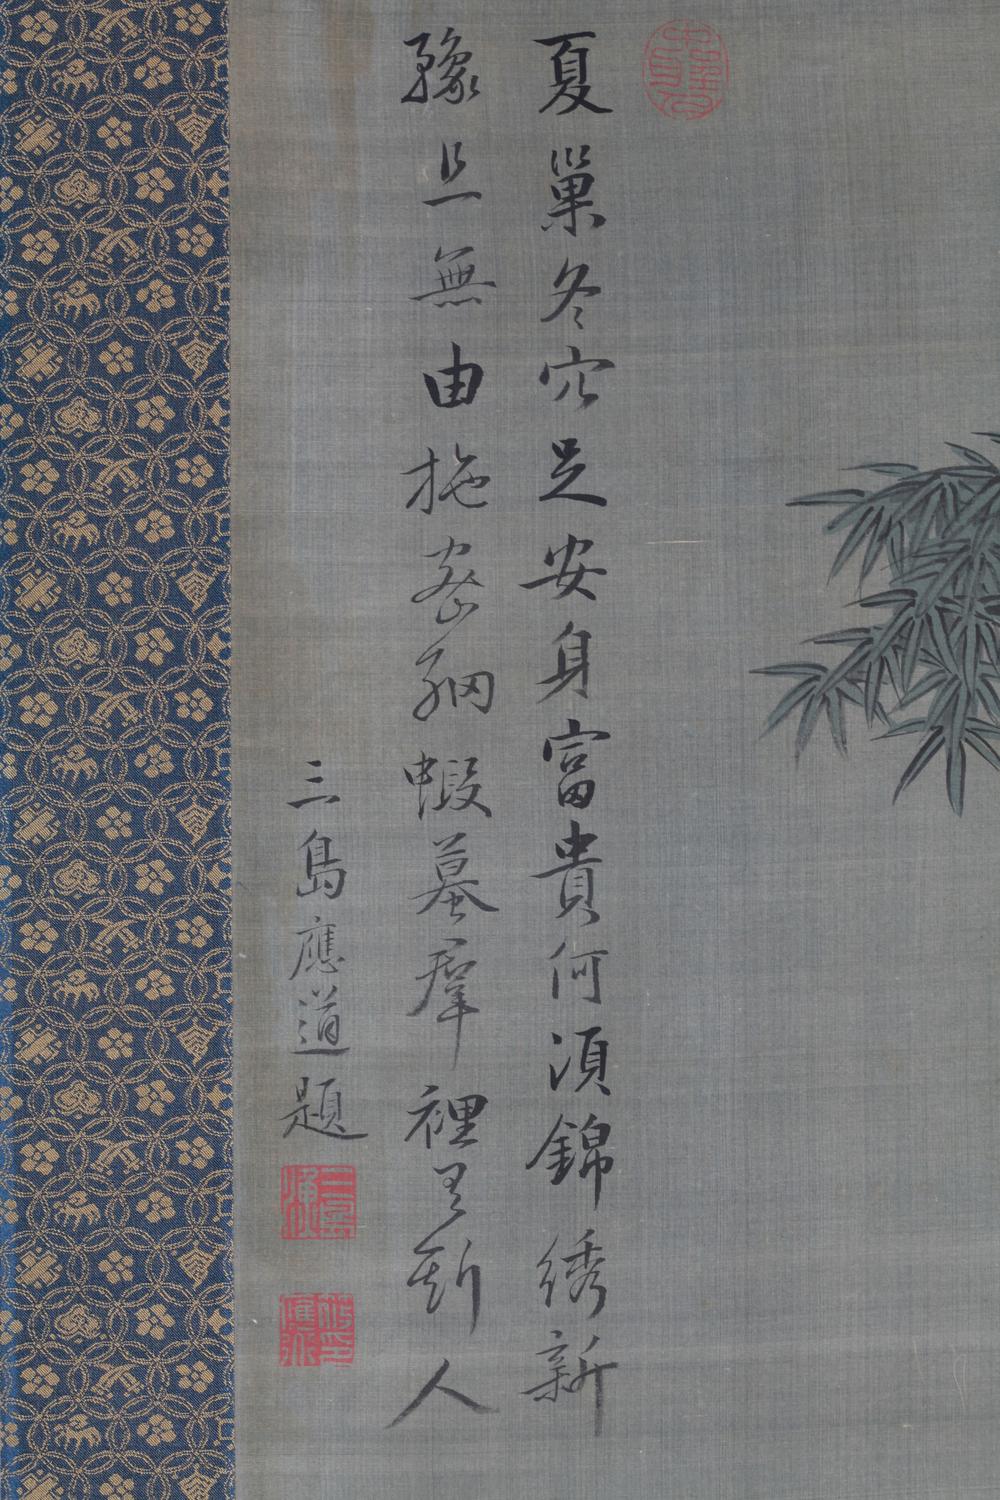 夏巢冬穴足安身富貴何須錦綉新
豫且無由施密網蝦蟇羣裡有斯人
三島應道題